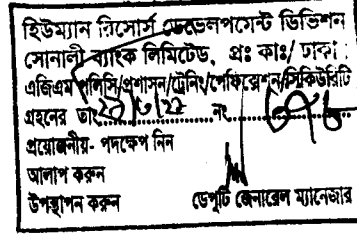 হিউম্যান রিসোর্স ডেভেলপমেন্ট ডিভিশন
সোনালী ব্যাংক লিমিটেড, প্রঃ কাঃ/ ঢাকা :
এজিএম পলিসি/প্রশাসন/ট্রেনিং/পেনশন/সিকিউরিটি
গ্রহনের তাং.................... নং....................
প্রয়োজনীয়- পদক্ষেপ নিন
আলাপ করুন
উপস্থাপন করুন ডেপুটি জেনারেল ম্যানেজার